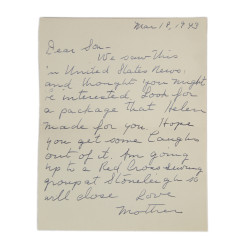 Mar 18, 1943
Dear Son -
We saw this
in United States News,
and thought you might
be interested. Look for
a package that Helen
made for you. Hope
you get some laughs
out of it. Am going
up to a Red Cross sewing
group at Stoneleigh so
will close Love
Mother